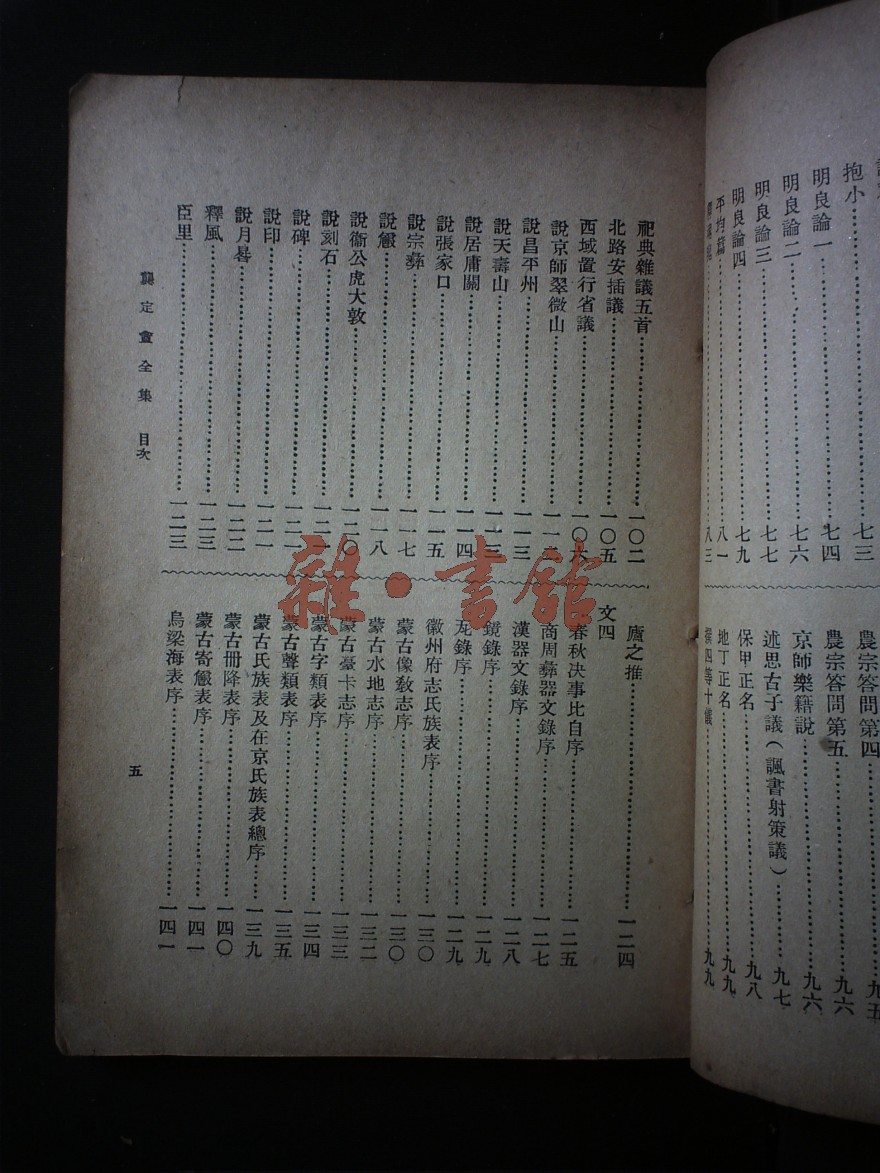 抱小……七三
明良論一……七四
明良論二……七六
明良論三……七七
明良論四……七九
平均篇……八一
八三
農宗答問第四……九五
農宗答問第五……九六
京師樂籍說……九六
述思古子議(諷書射策議)……九七
保甲正名……九八
地丁正名……九九
撰四等十儀……九九
祀典雜議五首……一〇二
北路安插議……一〇五
西域置行省議……一〇六
說京師翠微山……一一二
說昌平州……一一三
說天壽山……一一三
說居庸關……一一四
說張家口……一一五
說宗彝……一一七
說……一一八
說衞公虎大敦……一二〇
說刻石……一二一
說碑……一二一
說印……一二一
說月晷……一二二
釋風……一二三
臣里……一二三
廬之推……一二四
文四
春秋決事比自序……一二五
商周彝器文錄序……一二七
漢器文錄序……一二八
鏡錄序……一二九
瓦錄序……一二九
徽州府志氏族表序……一三〇
蒙古像敎志序……一三〇
蒙古水地志序……一三二
蒙古臺卡志序……一三三
蒙古字類表序……一三四
蒙古聲類表序……一三五
蒙古氏族表及在京氏族表總序……一三九
蒙古冊降表序……一四〇
蒙古寄爵表序……一四一
烏梁海表序……一四一
龔定盦全集 目次
五
雜·書館